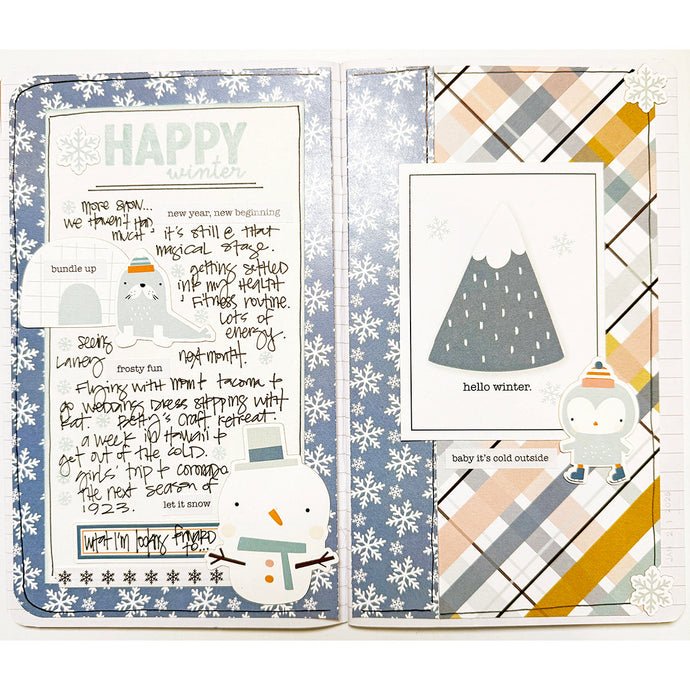 HAPPY
winter
more snow...
we haven't had
much
new year, new beginning
it's still @ that
magical stage.
getting settled
into my health
Fitness routine.
lots of
energy.
bundle up
seeing
Laney
next month.
frosty fun
Flying with mom to tacoma to
go wedding dress shopping with
Kat. Betty's craft retreat.
a week in Hawaii to
get out of the cold.
girls' trip to coronado
the next season of
1923.
let it snow
what I'm looking forward
to...
hello winter.
baby it's cold outside